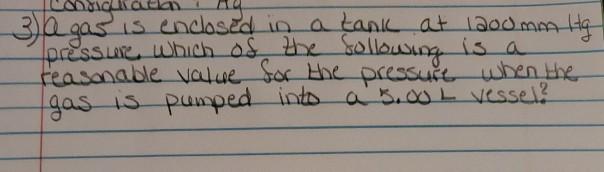 Configuration : Hg
3) A gas is enclosed in a tank at 1200 mm Hg
pressure which of the following is a
reasonable value for the pressure when the
gas is pumped into a 5.00 L vessel?